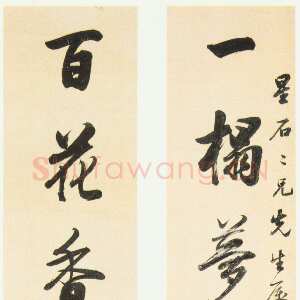 星石二兄先生属
一榻夢
百花香
Shufawang.CN